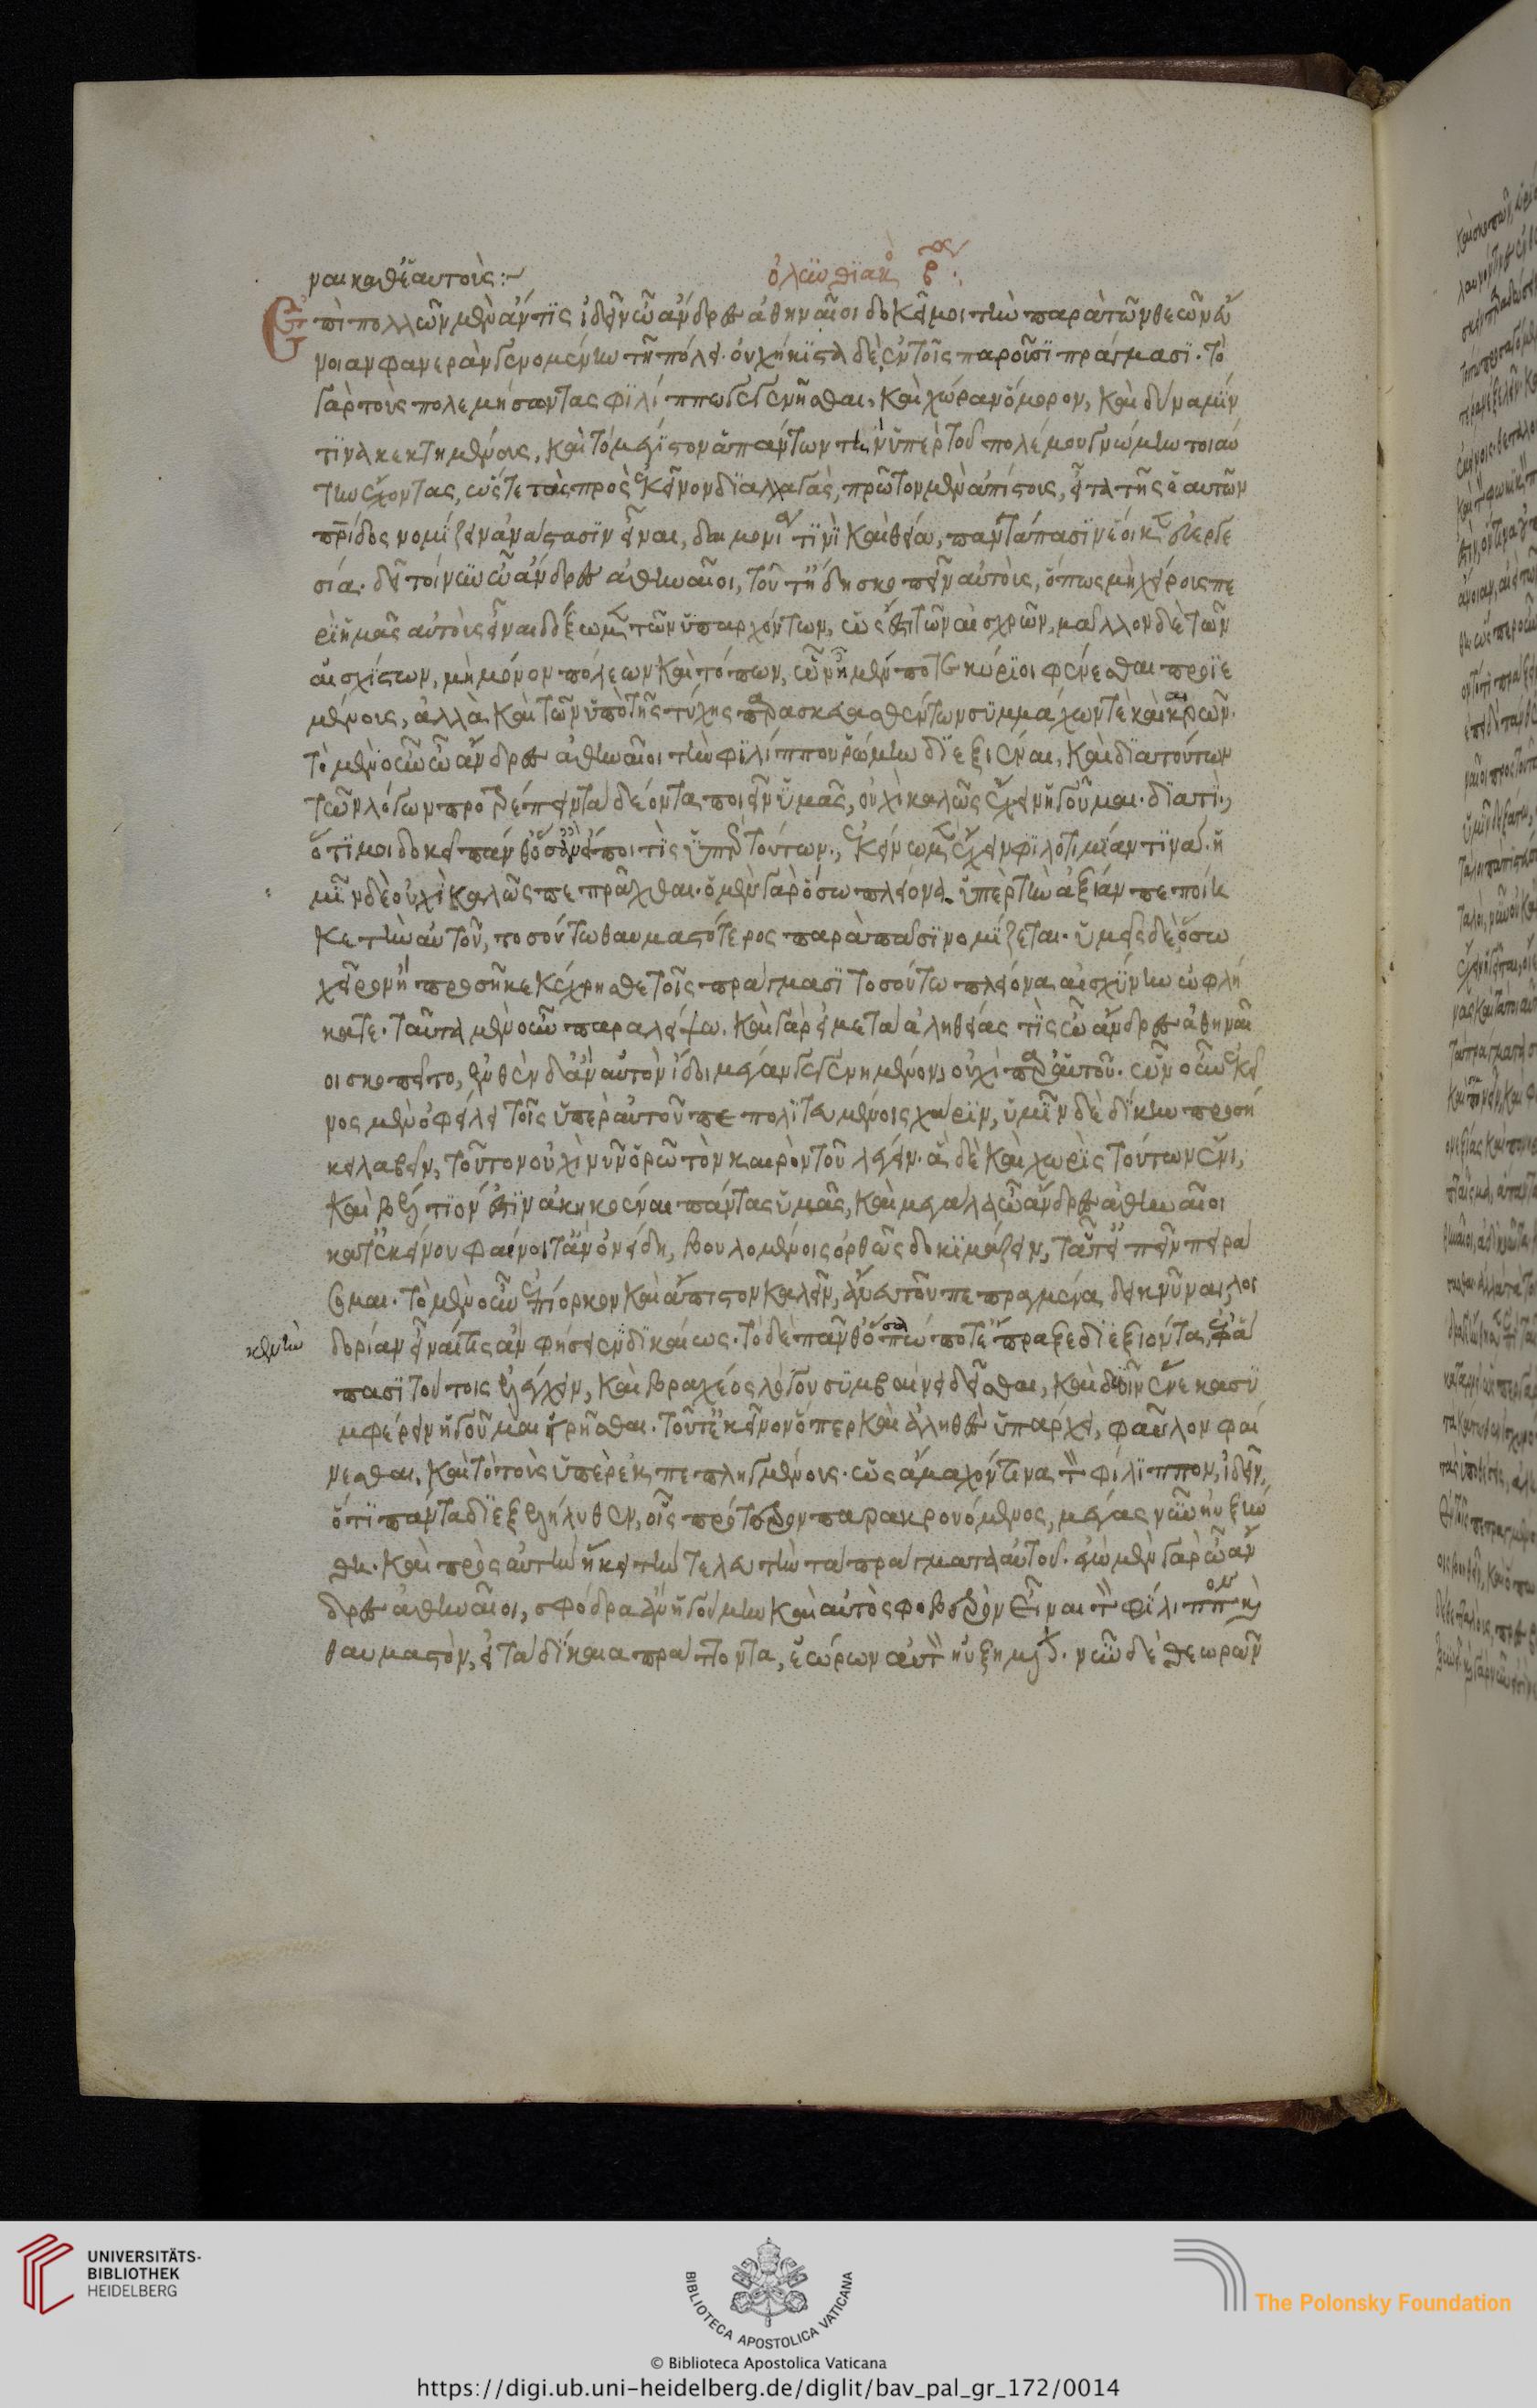 ναι καθ' ἑαυτοὺς:~ ὀλυνθιακὸς β^ος:
Ἐπὶ πολλῶν μὲν ἄν τις ἰδεῖν ὦ ἄνδρες ἀθηναῖοι δοκεῖ μοι τὴν παρὰ τῶν θεῶν εὔ
νοιαν φανερὰν γενομένην τῇ πόλει. οὐχ ἥκιστα δὲ ἐν τοῖς παροῦσι πράγμασι. τὸ
γὰρ τοὺς πολεμήσοντας φιλίππω γεγενῆσθαι, καὶ χώραν ὅμορον, καὶ δύναμίν
τινα κεκτημένους, καὶ τὸ μέγιστον ἁπάντων τὴν ὑπὲρ τοῦ πολέμου γνώμην τοιαύ
την ἔχοντας, ὥστε τὰς πρὸς ἐκεῖνον διαλλαγὰς, πρῶτον μὲν ἀπίστους, εἶτα τῆς ἑαυτῶν
πρίδος νομίζειν ἀνάστασιν εἶναι, δαιμονία τινὶ καὶ θεία, παντάπασιν ἔοικεν εὐεργε
σία. δεῖ τοίνυν ὦ ἄνδρες ἀθηναῖοι, τοῦτ' ἤδη σκοπεῖν αὐτοὺς, ὅπως μὴ χείρους πε
ρὶ ἡμᾶς αὐτοὺς εἶναι δόξωμεν τῶν ὑπαρχόντων, ὡς ἔστι τῶν αἰσχρῶν, μᾶλλον δὲ τῶν
αἰσχίστων, μὴ μόνον πόλεων καὶ τόπων, ὧν ἦμέν ποτε κύριοι φαίνεσθαι προϊε
μένους, ἀλλὰ καὶ τῶν ὑπὸ τῆς τύχης παρασκευασθέντων συμμάχων τὲ καὶ καιρῶν.
τὸ μὲν οὖν ὦ ἄνδρες ἀθηναῖοι τὴν φιλίππου ῥώμην διεξιέναι, καὶ διὰ τούτων
τῶν λόγων προτρέπειν τὰ δέοντα ποιεῖν ὑμᾶς, οὐχὶ καλῶς ἔχειν ἡγοῦμαι. διατί;
ὅτι μοι δοκεῖ πάνθ' ὅσ' ἂν εἴποι τις ὑπὲρ τούτων, ἐκείνω μὲν ἔχειν φιλοτιμίαν τινὰ. ἡ
μῖν δὲ οὐχὶ καλῶς πεπρᾶχθαι. ὁ μὲν γὰρ ὅσω πλείονα ὑπὲρ τὴν ἀξίαν πεποίη
κε τὴν αὑτοῦ, τοσούτω θαυμαστότερος παρὰ πᾶσι νομίζεται. ὑμεῖς δὲ ὅσω
χεῖρον ἢ προσῆκε κέχρησθε τοῖς πράγμασι τοσούτω πλείονα αἰσχύνην ὠφλή
κατε. ταῦτα μὲν οὖν παραλείψω. καὶ γὰρ εἰ μετὰ ἀληθείας τις ὦ ἄνδρες ἀθηναῖ
οι σκοποῖτο, ἐνθένδ' ἂν αὐτὸν ἴδοι μέγαν γεγενημένον, οὐχὶ παρ' αὑτοῦ. ὧν οὖν ἐκεῖ
νος μὲν ὀφείλει τοῖς ὑπὲρ αὐτοῦ πεπολιτευμένοις χάριν, ὑμῖν δὲ δίκην προσή
κει λαβεῖν, τούτων οὐχὶ νῦν ὁρῶ τὸν καιρὸν τοῦ λέγειν. ἃ δὲ καὶ χωρὶς τούτων ἔνι,
καὶ βέλτιόν ἐστιν ἀκηκοέναι πάντας ὑμᾶς, καὶ μεγάλα ὦ ἄνδρες ἀθηναῖοι
κατ' ἐκείνου φαίνοιτ' ἂν ὀνείδη, βουλομένοις ὀρθῶς δοκιμάζειν, ταῦτ' εἰπεῖν πειρά
σομαι. τὸ μὲν οὖν ἐπίορκον καὶ ἄπιστον καλεῖν, ἄνευ τοῦ τὰ πεπραγμένα δεικνύναι, λοι
δορίαν εἶναί τις ἂν φήσειεν δικαίως. τὸ δὲ πάνθ' ὅσα πώποτ' ἔπραξε διεξιόντα, ἐφ' ἅ
πασι τούτοις ἐλέγχειν, καὶ βραχέος λόγου συμβαίνει δεῖσθαι, καὶ δυοῖν ἕνεκα συ
μφέρειν ἡγοῦμαι εἰρῆσθαι. τοῦτ' ἐκεῖνον ὅπερ καὶ ἀληθὲς ὑπάρχει, φαῦλον φαί
νεσθαι, καὶ τὸ τοὺς ὑπερεκπεπληγμένους. ὡς ἄμαχόν τινα τὸν φίλιππον, ἰδεῖν,
ὅτι πάντα διεξελήλυθεν, οἷς πρότερον παρακρουόμενος, μέγας νῦν ηὐξή
θη. καὶ πρὸς αὐτὴν ἥκει τὴν τελευτὴν τὰ πράγματα αὐτοῦ. ἐγὼ μὲν γὰρ ὦ ἄν
δρες ἀθηναῖοι, σφόδρα ἂν ἡγούμην καὶ αὐτὸς φοβερὸν εἶναι τὸν φίλιππον καὶ
θαυμαστὸν, εἰ τὰ δίκαια πράττοντα, ἑώρων αὐτὸν ηὐξημένον. νῦν δὲ θεωρῶν
UNIVERSITÄTS-
BIBLIOTHEK
HEIDELBERG
BIBLIOTECA APOSTOLICA VATICANA
© Biblioteca Apostolica Vaticana
The Polonsky Foundation
https://digi.ub.uni-heidelberg.de/diglit/bav_pal_gr_172/0014